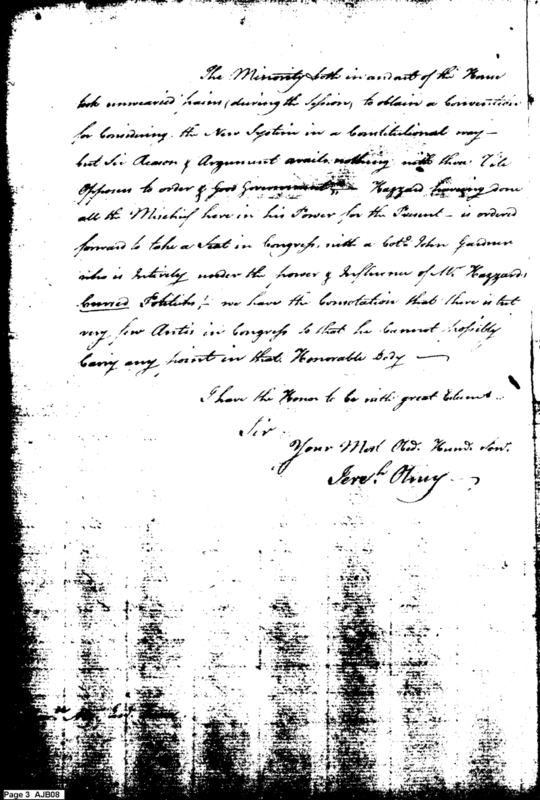 The Minority both in and out of the House
took unwearied pains, (during the Session, to obtain a Convention
for Considering the New System in a Constitutional way —
but Sir Reason & Argument avails nothing with these Vile
Opposers to order & Good Government — Hazzard having done
all the Mischief here in his Power for the Present — is ordered
forward to take a Seat in Congress, with a Colo. John Gardner
who is Intirely under the power & Influence of Mr. Hazzards
Cursed Politicks, — we have the Consolation that there is but
very few Anties in Congress so that he Cannot possibly
Carry any point in that Honorable Body —
I have the Honor to be with great Esteem —
Sir
Your Most Obed. Humb. Serv.
Jereh. Olney —
Page 3 AJB08